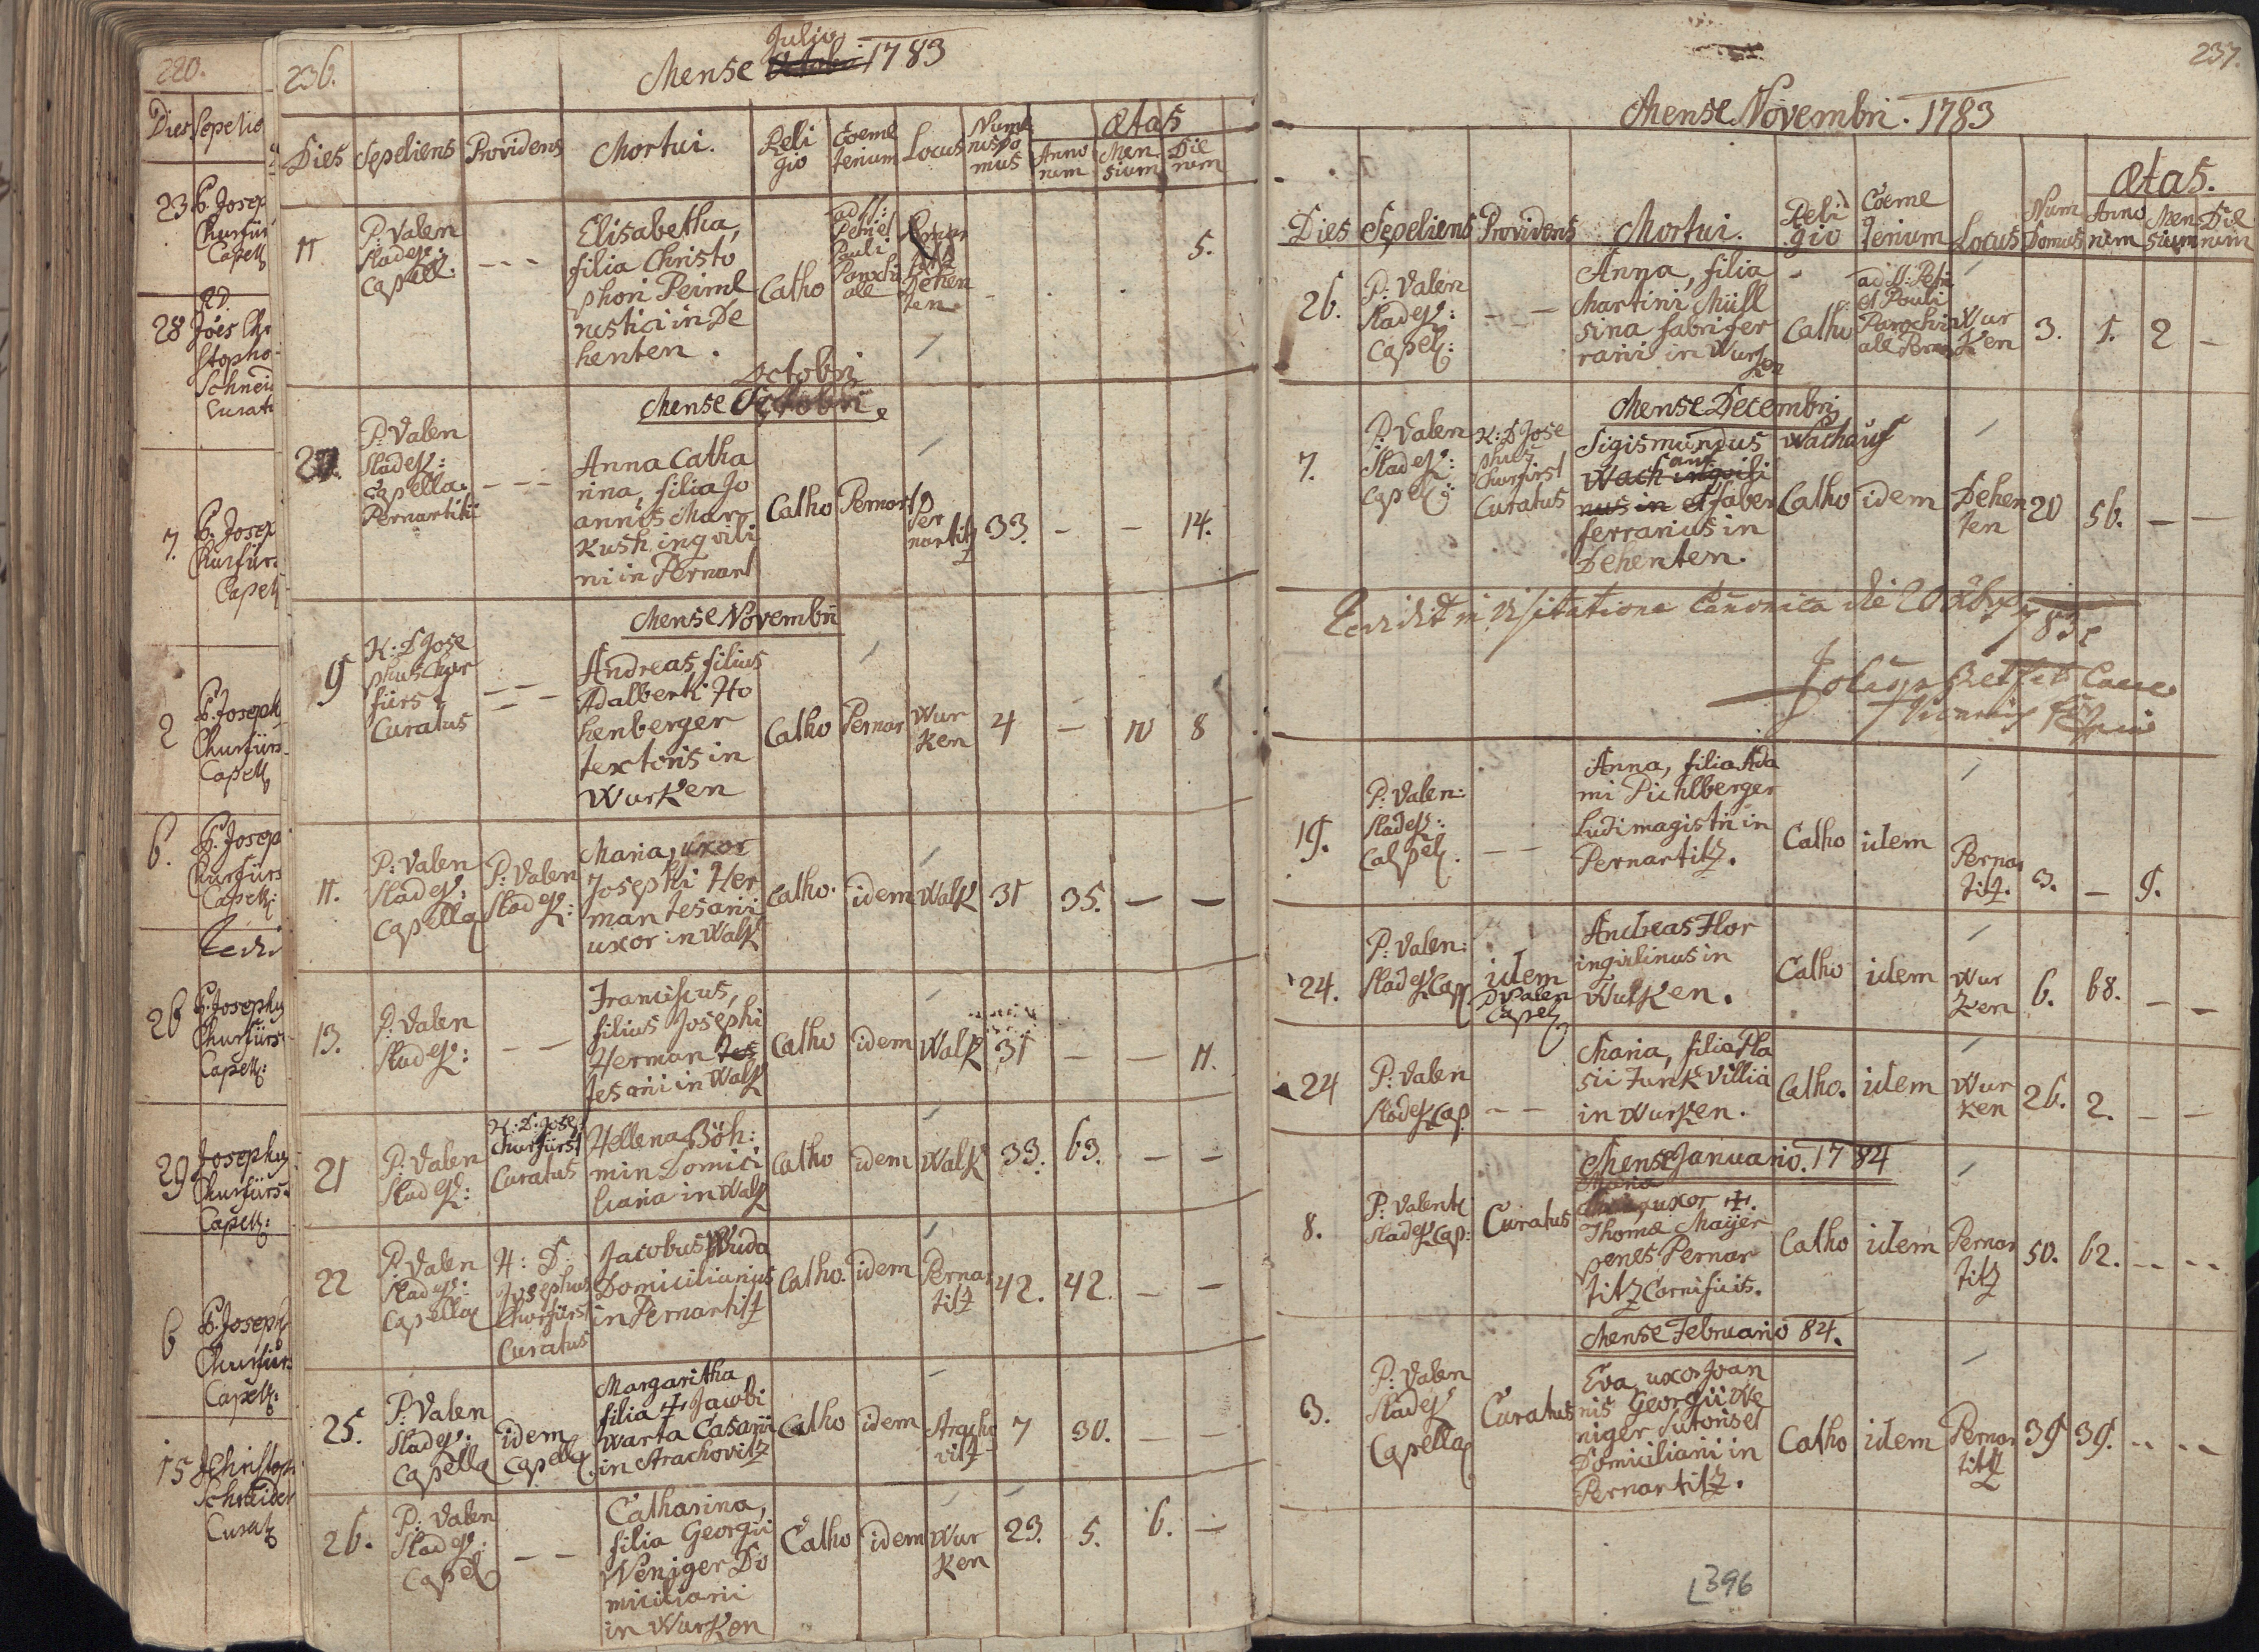 220.
Dies Sepelie
23 P. Josep
Churfür
Capell
28 R.D.
Joes Chr
stopho
Schneid
Curat
7. P. Josep
Churfür
Capell
2 P. Joseph
Churfürs
Capell
6. P. Josep
Churfürs
Capell:
26 P. Josephus
Churfürs
Capell:
29 Josephus
Churfürs
Capell:
6 P. Joseph
Churfürs
Capell:
15 Christop
Schneider
Curat
236.
Julio
Mense Octobri 1783
Dies Sepeliens Providens Mortui. Reli
gio Coeme
terium Locus Nume
rus Do
mus Ætas
Anno
rum Men
sium Die
rum
11 P: Valen
Sladek:
Capell. - - - Elisabetha,
filia Christo
phori Peiml
rustici in De
henten. Catho ad SS:
Petri et
Pauli
Parochi
ale Dehen
ten 5.
Octobri
Mense Octobri.
27. P: Valen
Sladek:
Capella.
Pernartitii - - - Anna Catha
rina, filia Jo
annis Mar
kush inqvili
ni in Pernart Catho Pernart Per
nartitz 33. - - 14.
Mense Novembri
9 H: D Jose
phus Chur
fürst
Curatus - - - Andreas filius
Adalberti Ho
henberger
textoris in
Wurken Catho Pernar Wur
ken 4 - IV 8
11. P: Valen
Sladek:
Capella P: Valen
Sladek: Maria, uxor
Josephi Her
man tesarii
uxor in Walk Catho. idem Walk 31 35. - -
13. P: Valen
Sladek: - - Franciscus,
filius Josephi
Herman tes
tesarii in Walk Catho idem Walk 31 - - 11.
21 P: Valen
Sladek: H: D: Jose
Churfürst
Curatus Hellena Böh:
min Domici
liaria in Walk Catho idem Walk 33. 63. - -
22 P: Valen
Sladek:
Capella H: D:
Josephus
Churfürst
Curatus Jacobus Wuda
Domiciliarius
in Pernartitz Catho. idem Perna
titz 42. 42. - -
25. P: Valen
Sladek:
Capella idem
Capella. Margaritha
filia + Jacobi
Warta Casarii
in Strachovitz Catho idem Stracho
vitz 7 30. - -
26. P: Valen
Sladek:
Capel - - Catharina,
filia Georgii
Weniger Do
miciliarii
in Wurken Catho idem Wur
ken 23. 5. 6. -
237.
Mense Novembri. 1783
Dies Sepeliens Providens Mortui. Reli
gio Coeme
terium Locus Num
Domus Ætas.
Anno
rum Men
sium Die
rum
26. P: Valen
Sladek:
Capel: - - Anna, filia
Martini Müll
sina fabri fer
rarii in Wurken Catho ad SS: Petri
et Pauli
Parochi
ale Pernar Wur
ken 3. 1. 2 -
Mense Decembri
7. P: Valen
Sladek:
Capel: H: D Jose
phus
Churfürst
Curatus Sigismundus Wachauf
Wach auf inqvili
nus in et faber
ferrarius in
Dehenten. Catho idem Dehen
ten 20 56. - -
in Visitatione Canonica die 20 Xbris 783
19. P: Valen:
Sladek:
Calpel. - - Anna, filia Ada
mi Pichlberger
Ludimagistri in
Pernartitz. Catho idem Pernar
titz. 3. - 9.
24. P: Valen:
Sladek Cap idem
P Valen
Capel Andreas Flor
inqvilinus in
Wurken. Catho idem Wur
ken 6. 68. - -
24 P: Valen
Sladek Cap - - Maria, filia Bla
sii Funk Villia
in Wurken. Catho. idem Wur
ken 26. 2. - -
Mense Januario. 1784
8. P: Valent
Sladek Cap: Curatus Maria
uxor +.
Thomæ Maijer
penes Pernar
titz Carnificis. Catho idem Pernar
titz 50. 62. -- --
Mense Februario 84.
3. P: Valen
Sladek
Capella Curatus Eva, uxor Joan
nis Georgii We
niger Sutoris et
Domiciliarii in
Pernartitz. Catho idem Pernar
titz 39 39. -- --
396